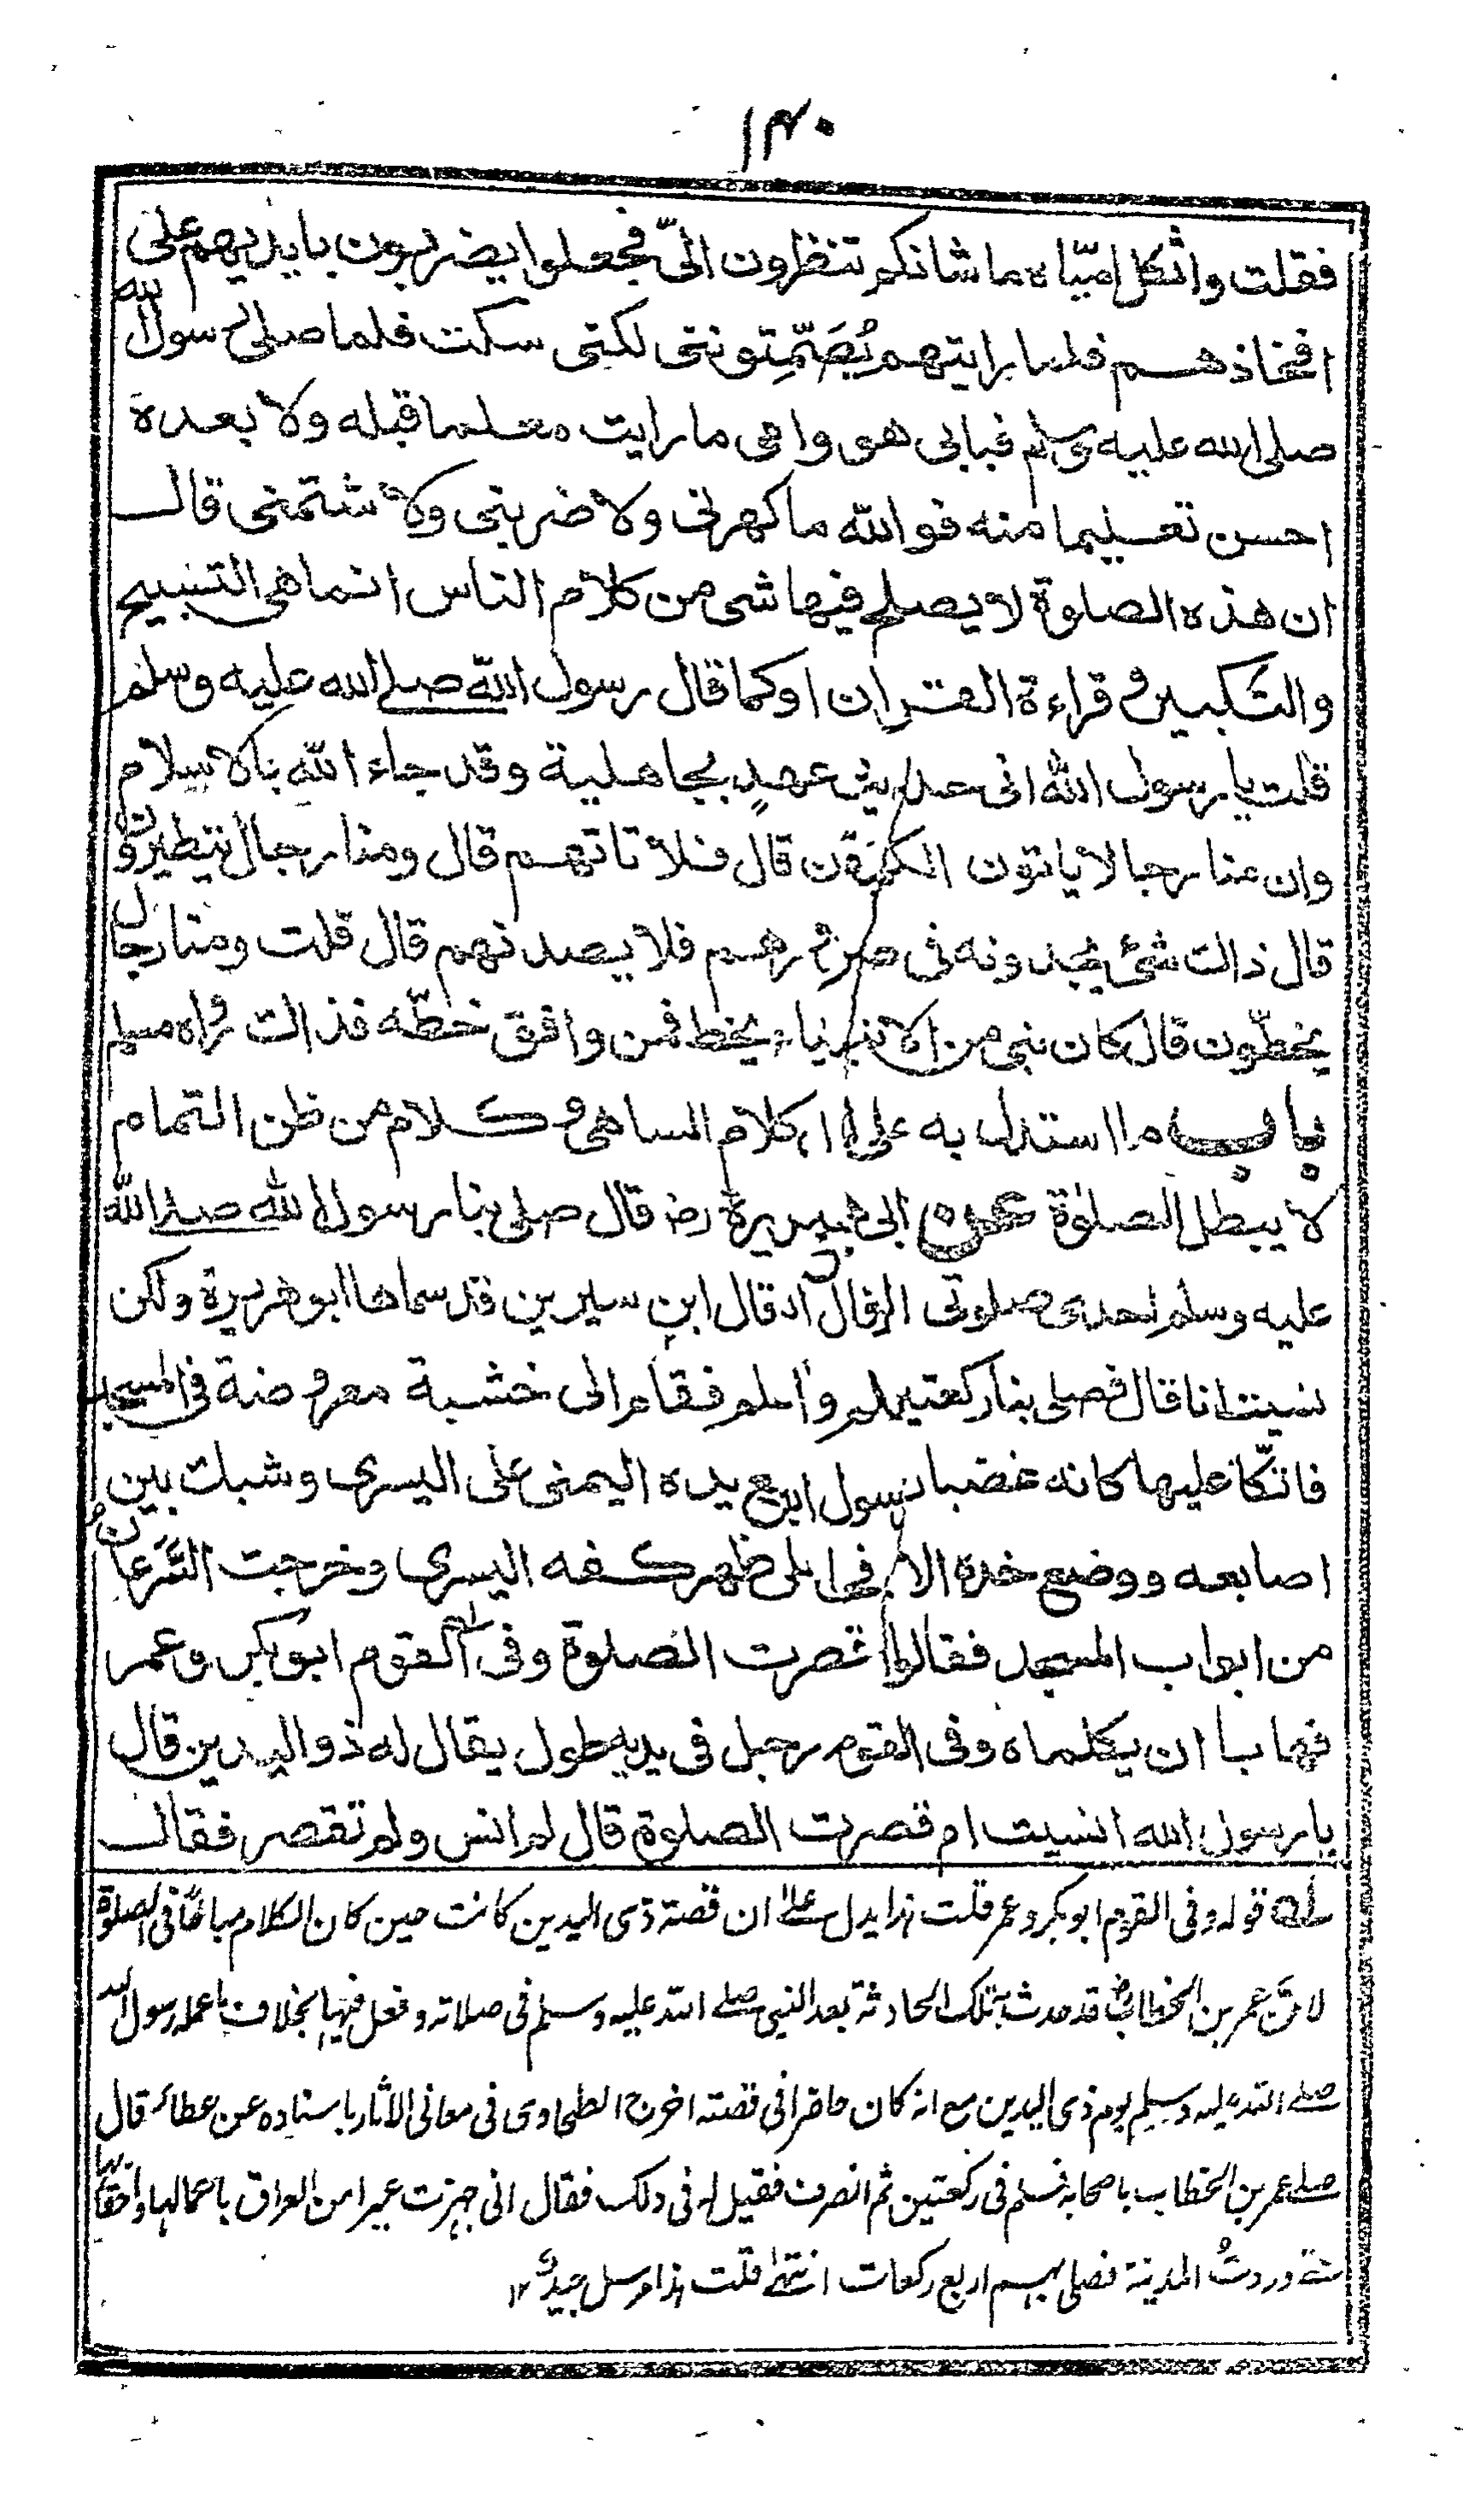 ۱۴۰
فقلت واثكل امياه ما شانكم تنظرون الىّ فجعلوا يضربون بايديهم على
افخاذهم فلما رايتهم يُصَمِّتونني لكني سكت فلما صلى رسول الله
صلى الله عليه وسلم فبابى هو وامى ما رايت معلما قبله ولا بعده
احسن تعليما منه فوالله ما كهرنى ولا ضربنى ولا شتمنى قال
ان هذه الصلوة لا يصلح فيها شى من كلام الناس انما هى التسبيح
والتكبير وقراءة القران او كما قال رسول الله صلى الله عليه وسلم
قلت يا رسول الله انى حديث عهدٍ بجاهلية وقد جاء الله بالاسلام
وان منا رجالا ياتون الكهان قال فلا تاتهم قال ومنا رجال يتطيرون
قال ذالك شئ يجدونه فى صدورهم فلا يصدنهم قال قلت ومنا رجال
يخطّون قال كان نبى من الانبياء يخط فمن وافق خطّه فذالك رواه مسلم
باب ما استدل به على ان كلام الساهى وكلام من ظن التمام
لا يبطل الصلوة عن ابى هريرة رض قال صلى بنا رسول الله صلى الله
عليه وسلم احدى صلوتى قال ابن سيرين قد سماها ابو هريرة ولكن
نسيت انا قال فصلى بنا ركعتين ثم سلم فقام الى خشبة معروضة فى المسجد
فاتكّا عليها كانه غضبان ووضع يده اليمنى على اليسرى وشبك بين
اصابعه ووضع خده الايمن على ظهر كفه اليسرى وخرجت السَّرَعانُ
من ابواب المسجد فقالوا قصرت الصلوة وفى القوم ابو بكر وعمر
فهابا ان يكلماه وفى القوم رجل فى يديه طول يقال له ذو اليدين قال
يا رسول الله انسيت ام قصرت الصلوة قال لم انس ولم تقصر فقال
له قوله وفى القوم ابو بكر وعمر قلت هذا يدل على ان قصة ذى اليدين كانت حين كان الكلام مباحًا فى الصلوة
لان عمر بن الخطابؓ قد حدث به تلك الحادثة بعد النبى صلى الله عليه وسلم فى صلاته وفعل فيها بخلاف ما عمله رسول الله
صلى الله عليه وسلم يوم ذى اليدين مع انه كان حاضرا فى قصته اخرج الطحاوى فى معانى الاثار باسناده عن عطاء قال
صلى عمر بن الخطاب باصحابه فسلم فى ركعتين ثم انصرف فقيل له فى ذلك فقال انى جهزت عيرا من العراق باحمالها واحقابها
حتى وردتُ المدينة فصلى بهم اربع ركعات انتهى قلت هذا مرسل جيد ۱۲